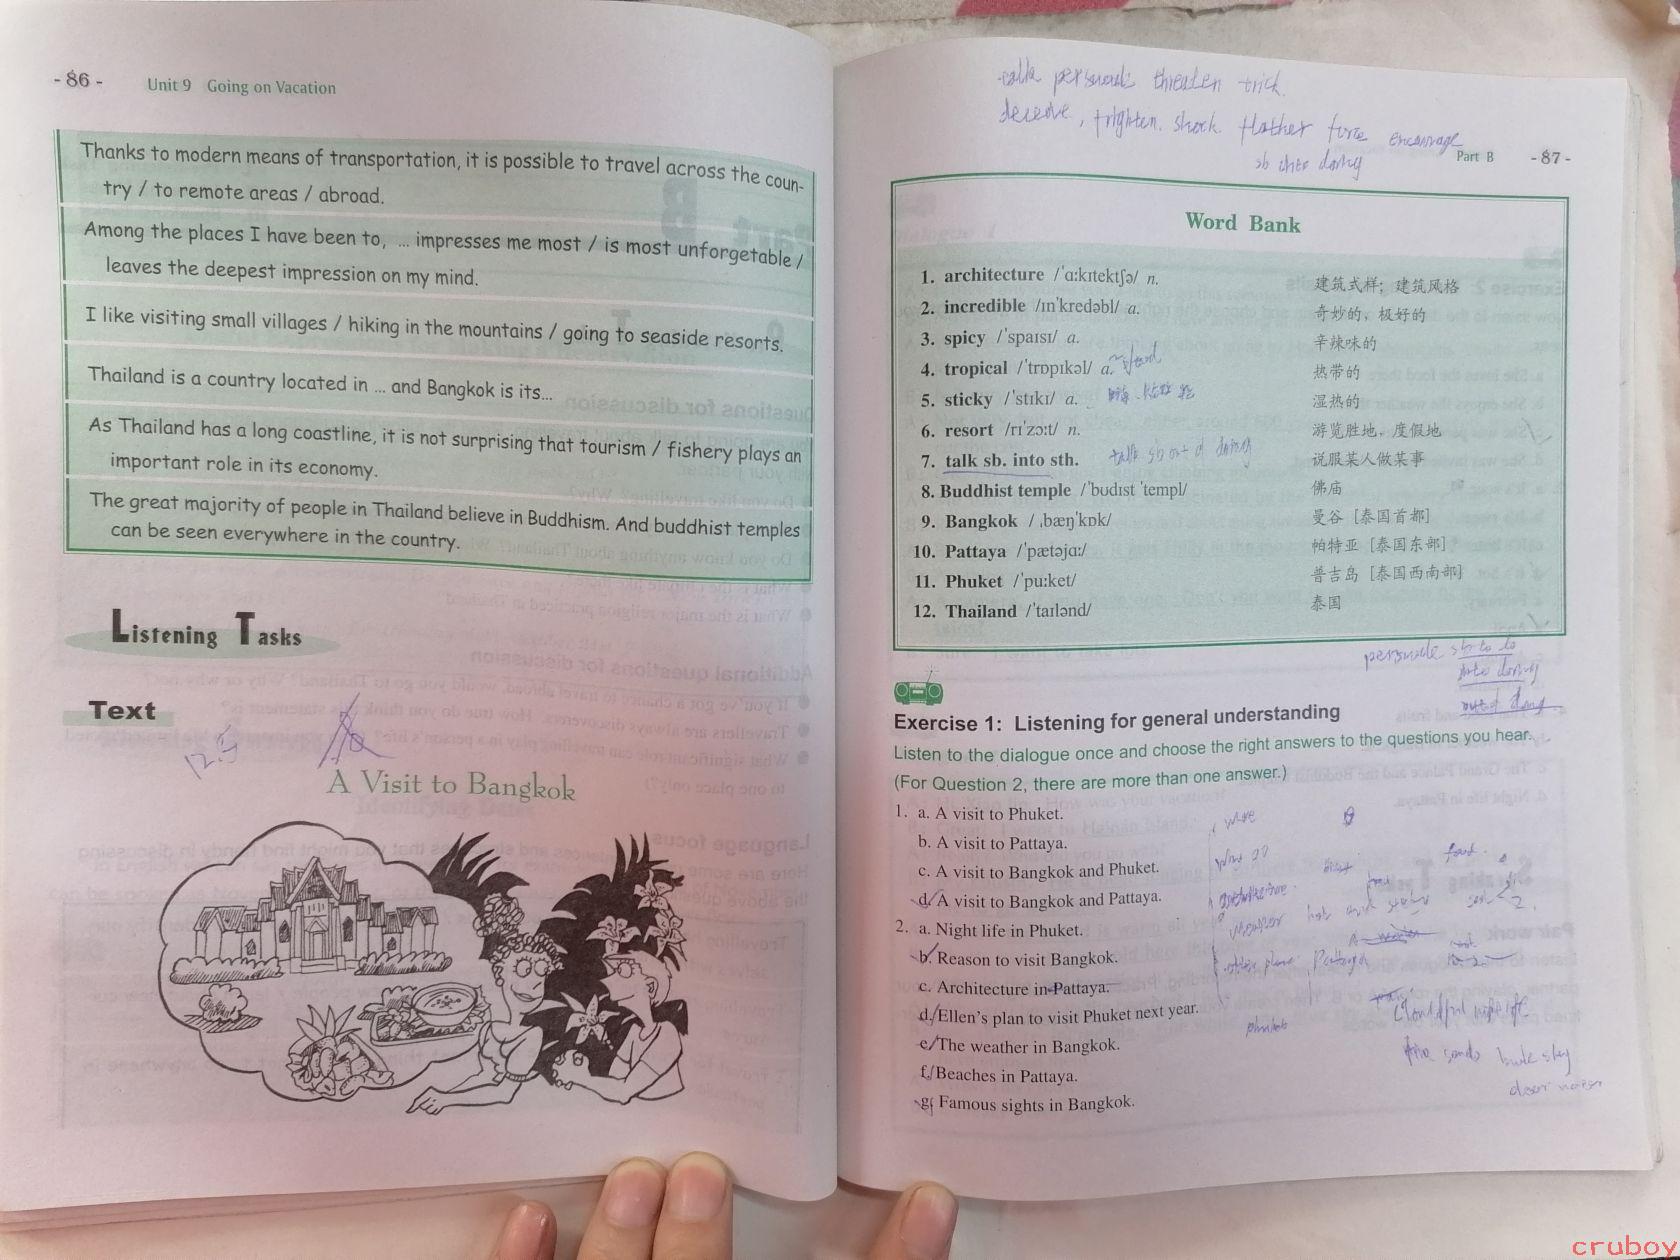 - 86 - Unit 9 Going on Vacation
Thanks to modern means of transportation, it is possible to travel across the coun-
try / to remote areas / abroad.
Among the places I have been to, ... impresses me most / is most unforgetable /
leaves the deepest impression on my mind.
I like visiting small villages / hiking in the mountains / going to seaside resorts.
Thailand is a country located in ... and Bangkok is its...
As Thailand has a long coastline, it is not surprising that tourism / fishery plays an
important role in its economy.
The great majority of people in Thailand believe in Buddhism. And buddhist temples
can be seen everywhere in the country.
Listening Tasks
Text
A Visit to Bangkok
threaten trick
frighten. shock force encourage
Part B - 87 -
Word Bank
1. architecture /ˈɑ:kɪtektʃə/ n. 建筑式样；建筑风格
2. incredible /ɪnˈkredəbl/ a. 奇妙的，极好的
3. spicy /ˈspaɪsɪ/ a. 辛辣味的
4. tropical /ˈtrɒpɪkəl/ a. 热带的
5. sticky /ˈstɪkɪ/ a. 湿热的
6. resort /rɪˈzɔ:t/ n. 游览胜地，度假地
7. talk sb. into sth. 说服某人做某事
8. Buddhist temple /ˈbʊdɪst ˈtempl/ 佛庙
9. Bangkok /ˌbæŋˈkɒk/ 曼谷 [泰国首都]
10. Pattaya /ˈpætəjɑ:/ 帕特亚 [泰国东部]
11. Phuket /ˈpu:ket/ 普吉岛 [泰国西南部]
12. Thailand /ˈtaɪlənd/ 泰国
persuade sb to do
into doing
Exercise 1: Listening for general understanding
Listen to the dialogue once and choose the right answers to the questions you hear.
(For Question 2, there are more than one answer.)
1. a. A visit to Phuket.
b. A visit to Pattaya.
c. A visit to Bangkok and Phuket.
d. A visit to Bangkok and Pattaya.
2. a. Night life in Phuket.
b. Reason to visit Bangkok.
c. Architecture in Pattaya.
d. Ellen's plan to visit Phuket next year.
e. The weather in Bangkok.
f. Beaches in Pattaya.
g. Famous sights in Bangkok.
cruboy